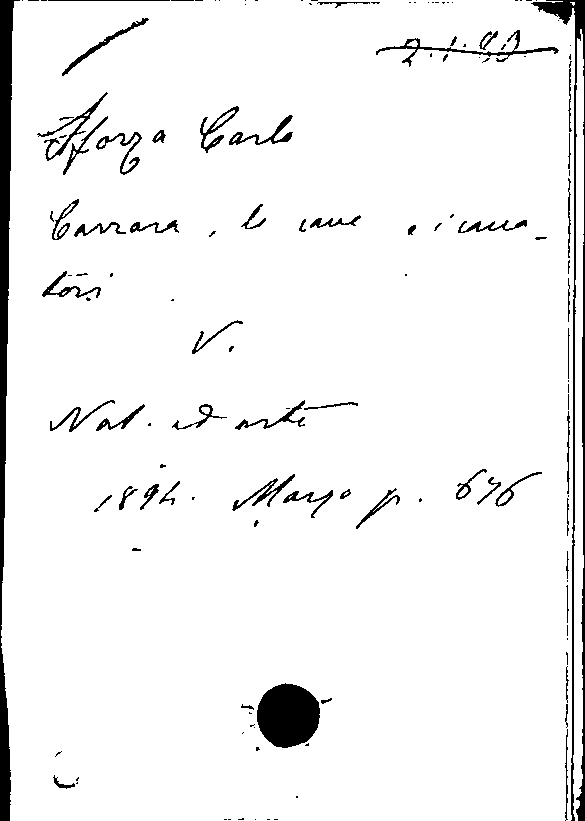 2.1.80.
Sforza Carlo
Carrara, le cave e i cava-
tori
V.
Nat. ed arte
1894. Marzo p. 676